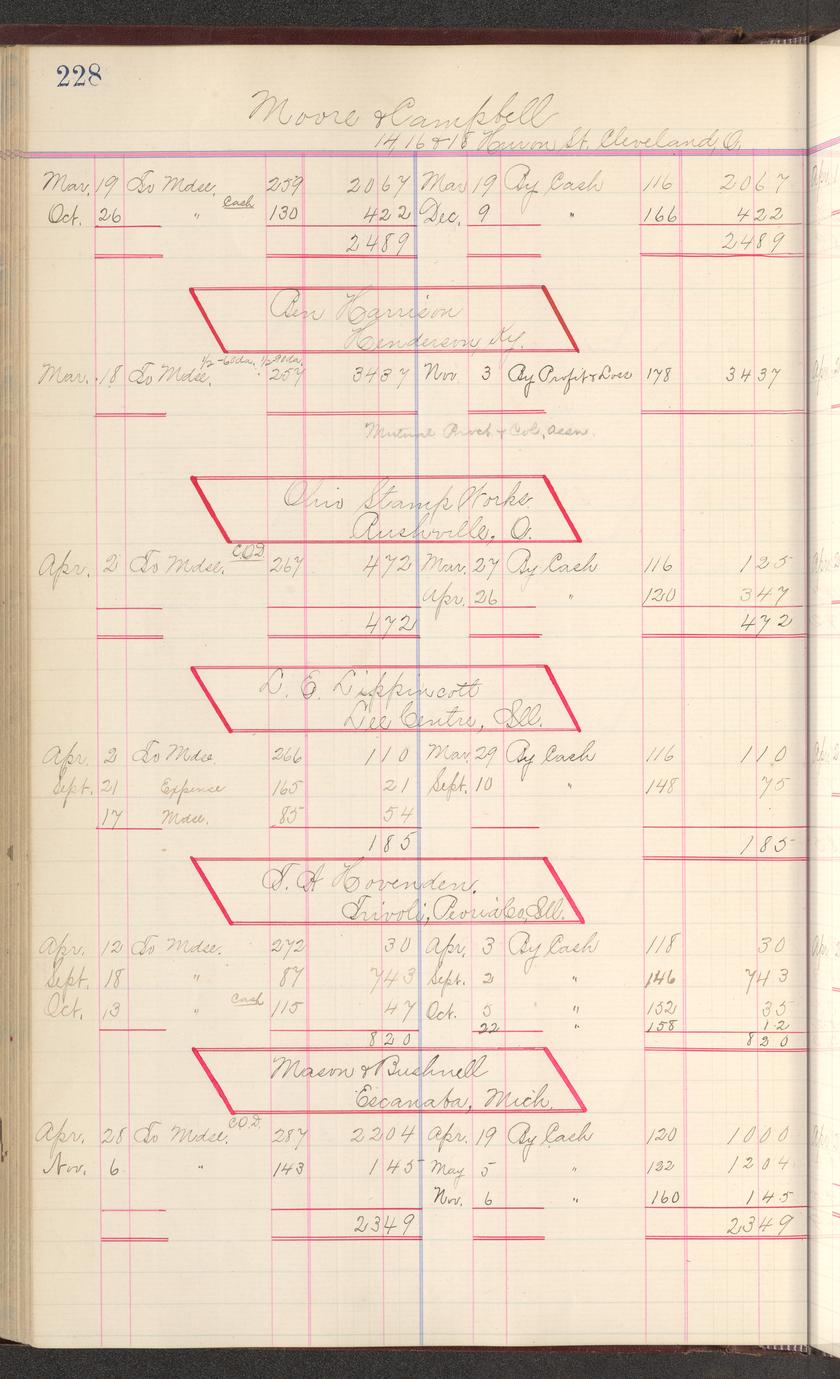 228
Moore & Campbell
14, 16 & 18 Huron St. Cleveland, O.
Mar. 19 To Mdse. 259 2067 Mar 19 By Cash 116 2067
Oct. 26 " Cash 130 422 Dec. 9 " 166 422
2489 2489
Ben Harrison
Henderson, Ky.
1/2-60da. 1/2 90da.
Mar. 18 To Mdse. 257 3437 Nov 3 By Profit & Loss 178 3437
Mutual & Col. Assn.
Ohio Stamp Works
Rushville, O.
Apr. 2 To Mdse. C.O.D. 267 472 Mar. 27 By Cash 116 125
Apr. 26 " 120 347
472 472
L. E. Lippincott
Lee Centre, Ill.
Apr. 2 To Mdse. 266 110 Mar. 29 By Cash 116 110
Sept. 21 Expense 165 21 Sept. 10 " 148 75
17 Mdse. 85 54
185 185
T. A Hovenden.
Trivoli, Peoria Co, Ill.
Apr. 12 To Mdse. 272 30 Apr. 3 By Cash 118 30
Sept. 18 " 87 743 Sept. 2 " 146 743
Oct. 13 " Cash 115 47 Oct. 5 " 152 35
22 " 158 12
820 820
Mason & Bushnell
Escanaba, Mich.
Apr. 28 To Mdse. C.O.D. 287 2204 Apr. 19 By Cash 120 1000
Nov. 6 " 143 145 May 5 " 122 1204
Nov. 6 " 160 145
2349 2349